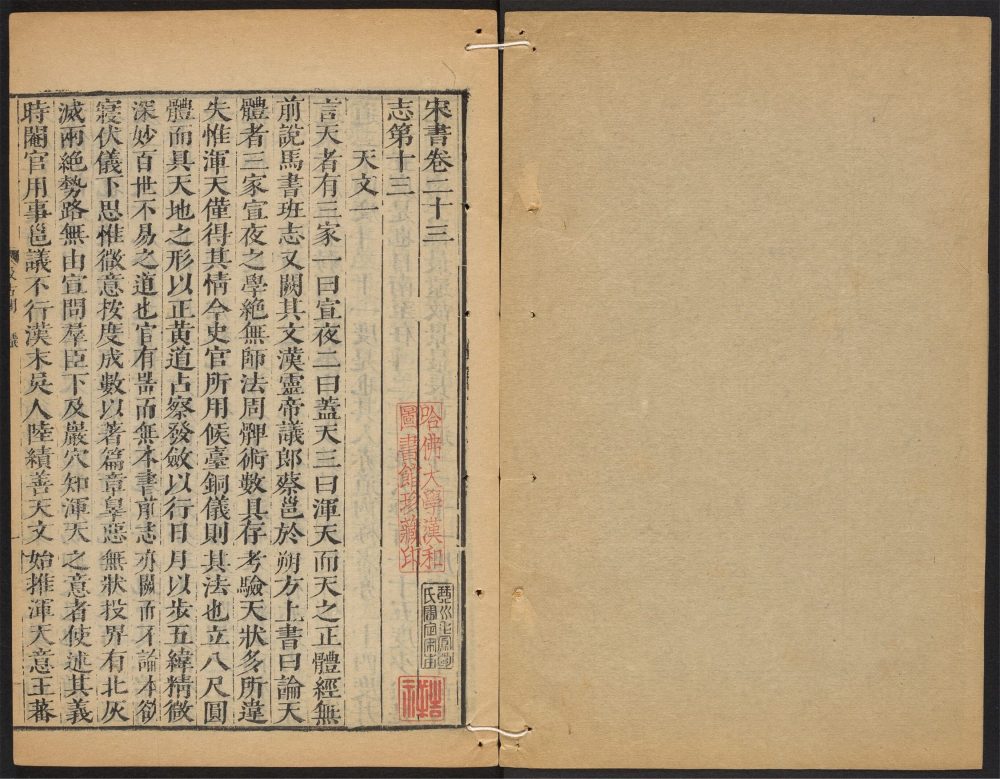 宋書卷二十三
志第十三
天文一
言天者有三家一曰宣夜二曰蓋天三曰渾天而天之正體經無
前說馬書班志又闕其文漢靈帝議郎蔡邕於朔方上書曰論天
體者三家宣夜之學絶無師法周髀術數具存考驗天狀多所違
失惟渾天僅得其情今史官所用候臺銅儀則其法也立八尺圓
體而具天地之形以正黄道占察發斂以行日月以步五緯精微
深妙百世不易之道也官有噐而無本書前志亦闕而不論本欲
寢伏儀下思惟微意按度成數以著篇章辠惡無狀投畀有北灰
滅兩絶勢路無由宣問羣臣下及巖穴知渾天之意者使述其義
時閹官用事邕議不行漢末吳人陸績善天文始推渾天意王蕃
哈佛大學漢和
圖書館珍藏印